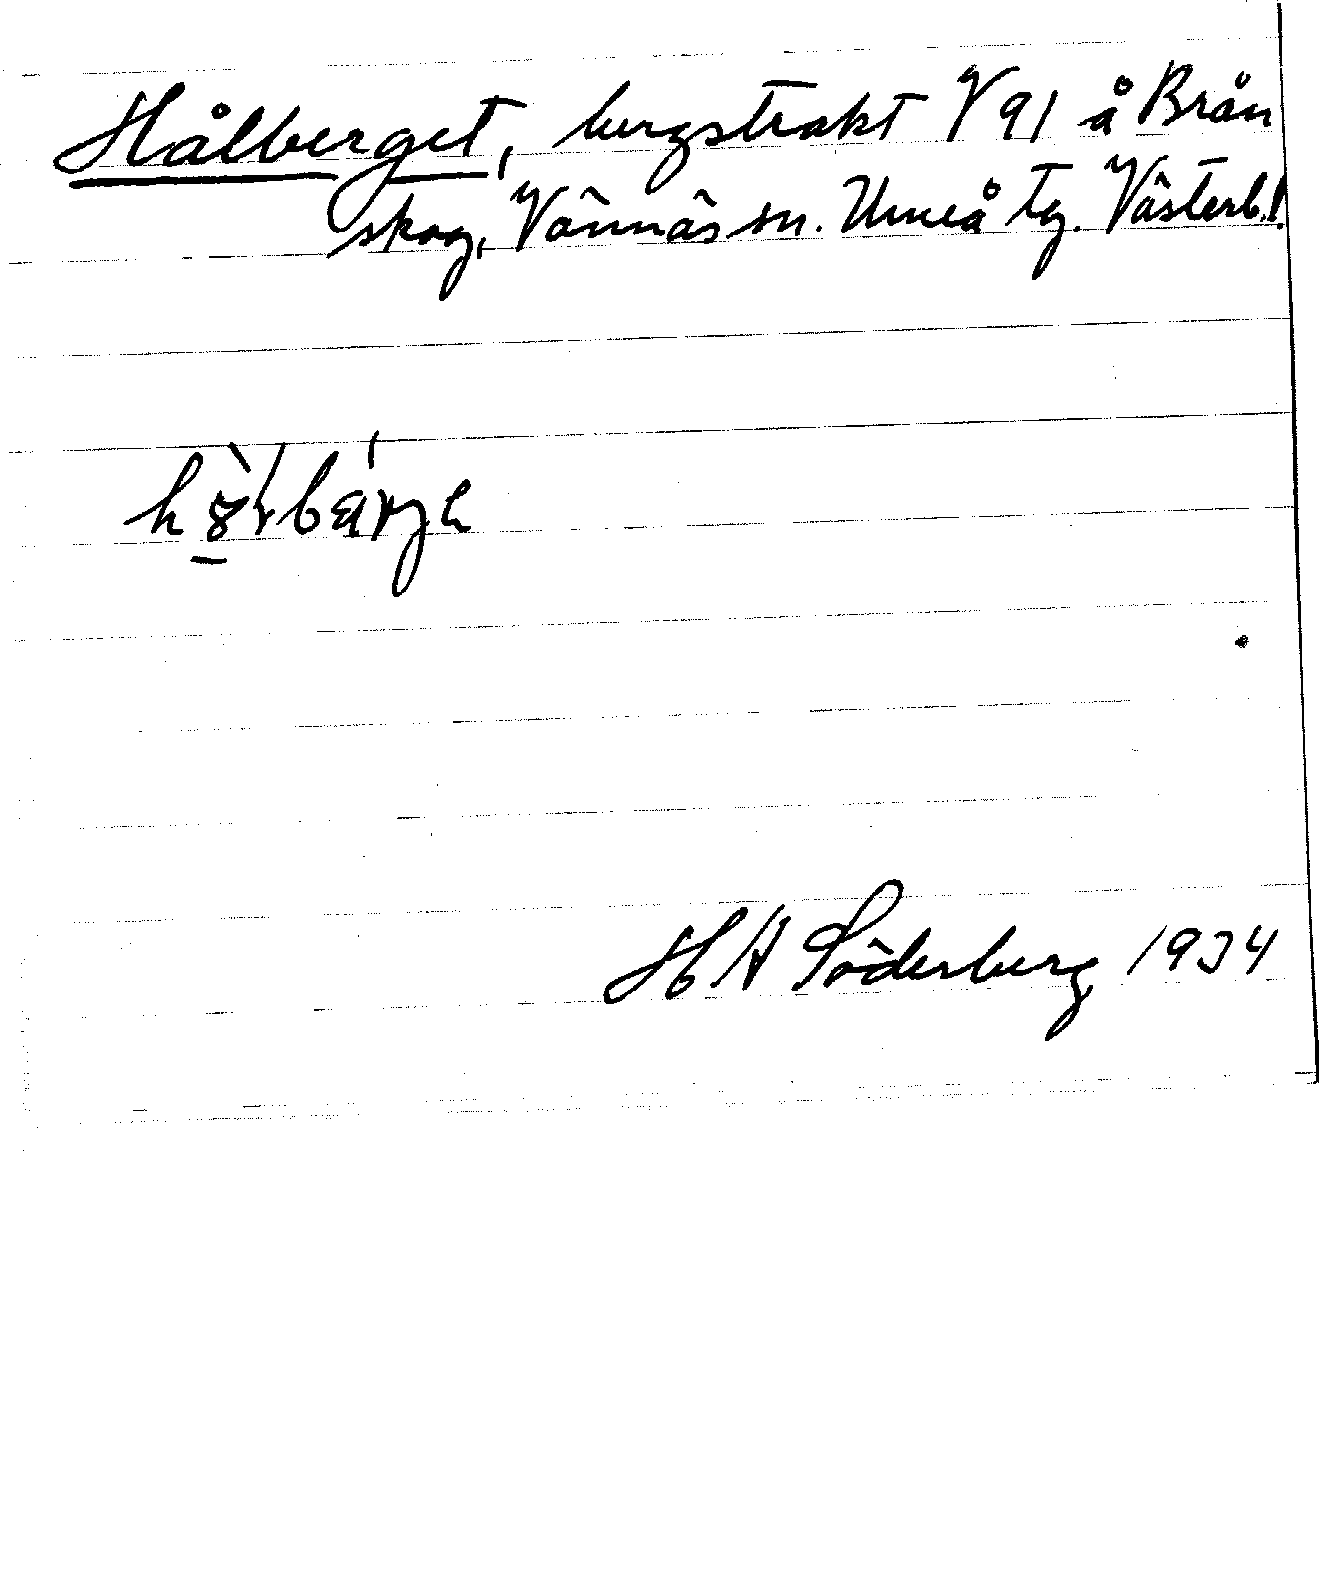 Hålberget, bergstrakt V 91 å Brån
skog, Vännäs sn. Umeå tg. Västerb.l.
H A Söderberg 1934